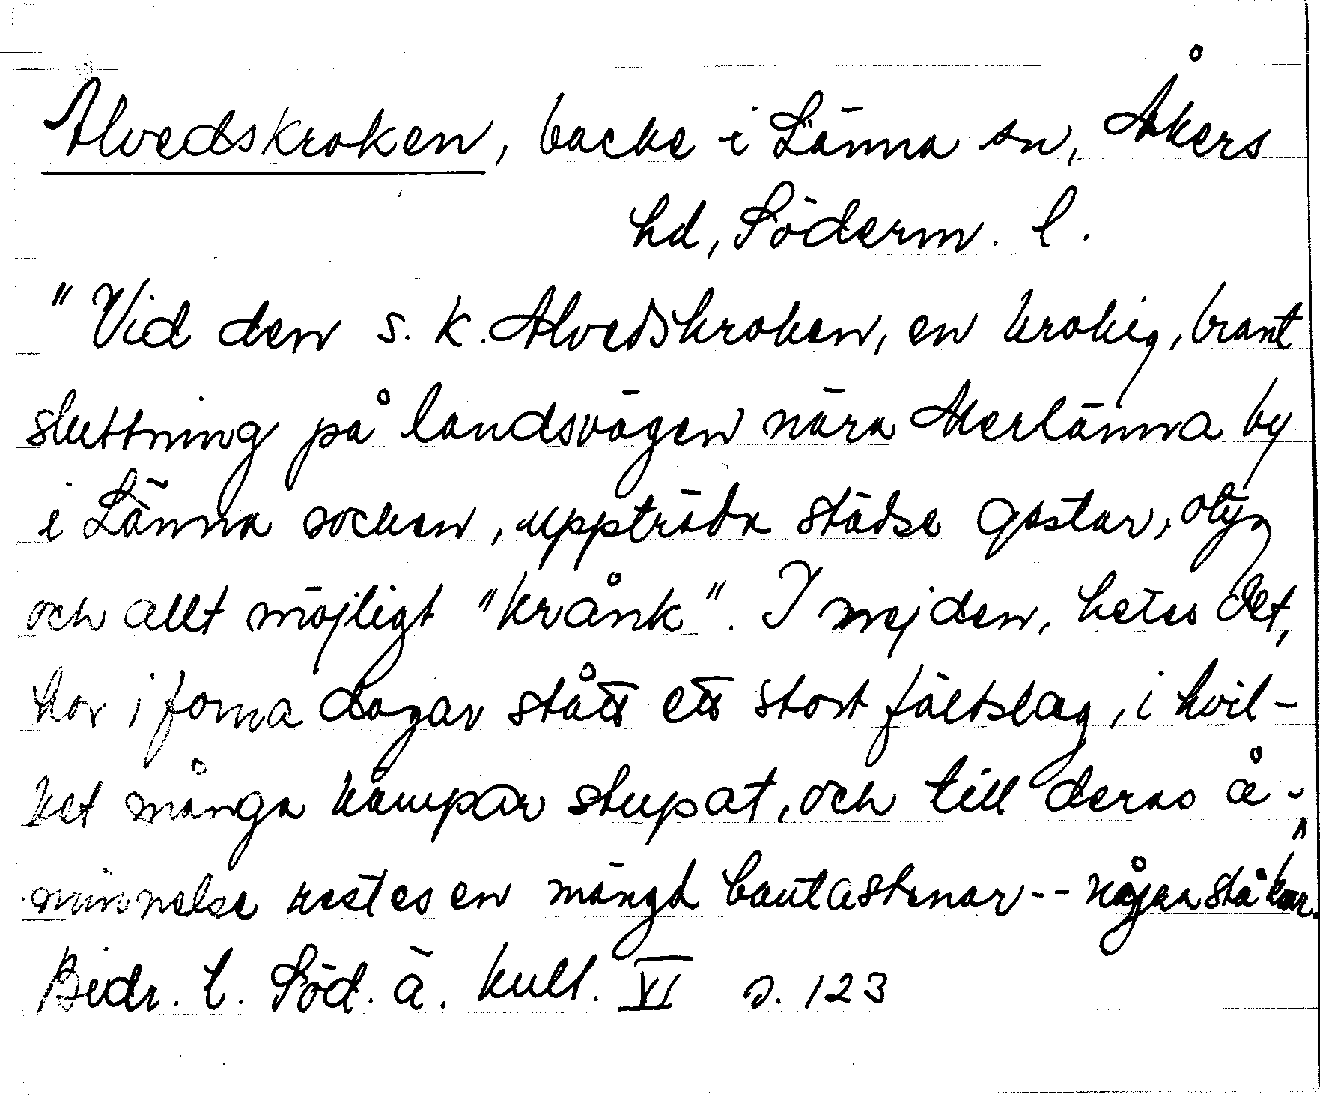 Ålvedskroken, backe i Länna sn, Åkers
hd, Söderm. l.
"Vid den s.k. Alvedskroken, en krokig, brant
sluttning på landsvägen nära Merlänna by
i Länna socken, uppträda städse gastar, otyg
och allt möjligt "krånk". I nejden, hetes det,
har i forna dagar stått ett stort fältslag, i hvil-
ket många kämpar stupat, och till deras å-
minnelse restes en mängd bautastenar -- några stå kvar."
Bidr. t. Söd. ä. kult. VI s. 123